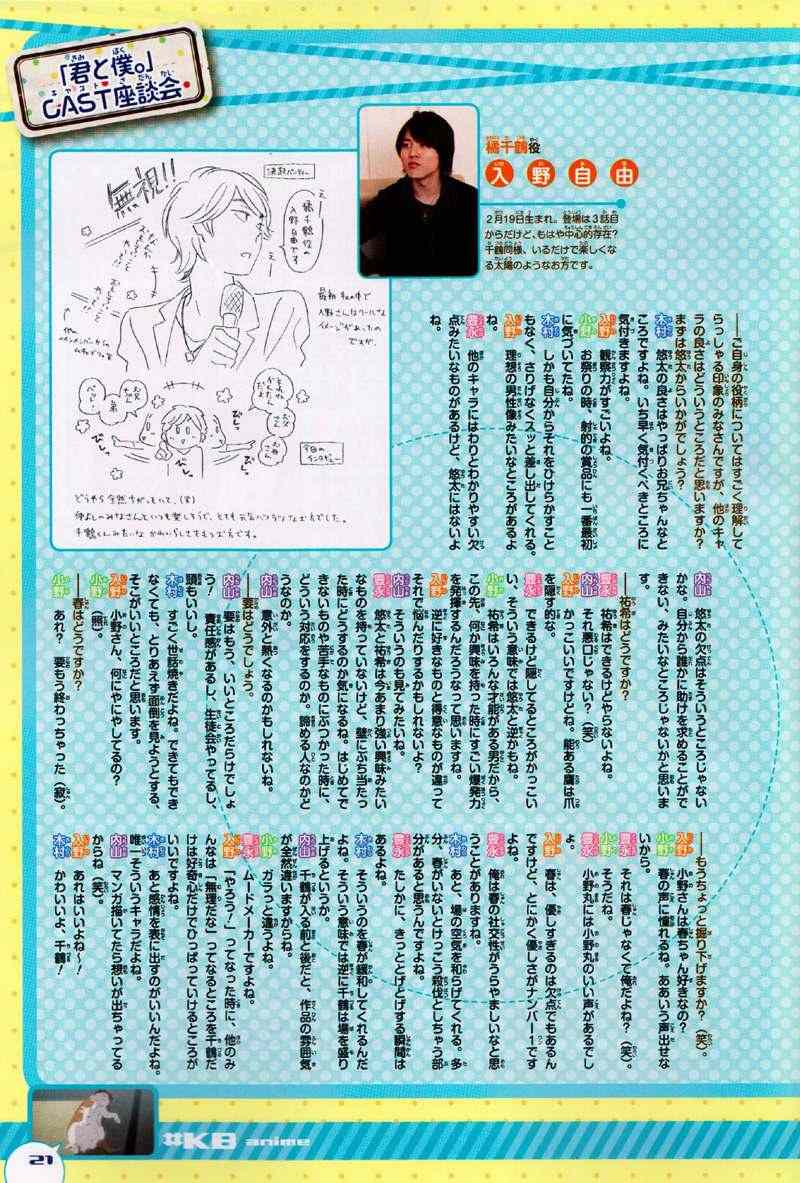 「君と僕。」
CAST座談会
橘千鶴役
入野自由
2月19日生まれ。登場は3話目
からだけど、もはや中心的存在?
千鶴同様、いるだけで楽しくな
る太陽のようなお方です。
無視!!
橘千鶴役の
入野自由です
最初 私の中で
入野さんはクールな
イメージがあったの
ですが、
――ご自身の役柄についてはすごく理解して
らっしゃる印象のみなさんですが、他のキャ
ラの良さはどういうところだと思いますか?
まずは悠太からいかがでしょう?
木村 悠太の良さはやっぱりお兄ちゃんなと
ころですよね。いち早く気付くべきところに
気付きますよね。
入野 観察力がすごいよね。
小野 お祭りの時、射的の賞品にも一番最初
に気づいてたね。
木村 しかも自分からそれをひけらかすこと
もなく、さりげなくスッと差し出してくれる。
入野 理想の男性像みたいなところがあるよ
ね。
豊永 他のキャラにはわりとわかりやすい欠
点みたいなものがあるけど、悠太にはないよ
ね。
内山 悠太の欠点はそういうところじゃない
かな。自分から誰かに助けを求めることがで
きない、みたいなところじゃないかと思いま
す。
――祐希はどうですか?
豊永 祐希はできるけどやらないよね。
内山 それ悪口じゃない?(笑)
入野 かっこいいですけどね。能ある鷹は爪
を隠す的な。
木村 できるけど隠してるところがかっこい
い、そういう意味では悠太と逆かもね。
小野 祐希はいろんな才能がある男だから、
この先、何か興味を持った時にすごい爆発力
を発揮するんだろうなって思いますね。
入野 逆に好きなものと得意なものが違って
それで悩んだりするかもしれないよ?
内山 そういうのも見てみたいね。
豊永 悠太と祐希は今あまり強い興味みたい
なものを持っていないけど、壁にぶち当たっ
た時にどうするのか気になるね。はじめてで
きないものや苦手なものにぶつかった時に、
どういう対応をするのか。諦める人なのかど
うなのか。
内山 意外と熱くなるのかもしれないね。
――要はどうでしょう。
内山 要はもう、いいところだらけでしょ
う!責任感があるし、生徒会やってるし、
頭もいいし。
木村 すごく世話焼きだよね。できてもでき
なくても、とりあえず面倒を見ようとする、
そこがいいところだと思います。
入野 小野さん、何にやにやしてるの?
小野 (照)。
――春はどうですか?
小野 あれ? 要もう終わっちゃった(寂)。
――もうちょっと掘り下げますか?(笑)。
入野 小野さんは春ちゃん好きなの?
小野 春の声に憧れるね。ああいう声出せな
いから。
豊永 それは春じゃなくて俺だよね?(笑)。
小野 そうだね。
豊永 小野丸には小野丸のいい声があるでし
ょ。
入野 春は、優しすぎるのは欠点でもあるん
ですけど、とにかく優しさがナンバー1です
よね。
豊永 俺は春の社交性がうらやましいなと思
うことがありますね。
木村 あと、場の空気を和らげてくれる。多
分、春がいないとけっこう殺伐としちゃう部
分があると思うんですよね。
豊永 たしかに、きっととげとげする瞬間は
あるよね。
木村 そういうのを春が緩和してくれるんだ
よね。そういう意味では逆に千鶴は場を盛り
上げるというか。
内山 千鶴が入る前と後だと、作品の雰囲気
が全然違いますからね。
小野 ガラっと違うよね。
豊永 ムードメーカーですよね。
入野 「やろう!」ってなった時に、他のみ
んなは「無理だな」ってなるところを千鶴だ
けは好奇心だけでひっぱっていけるところが
いいですよね。
木村 あと感情を表に出すのがいいんだよね。
唯一そういうキャラだよね。
内山 マンガ描いてたら想いが出ちゃってる
からね(笑)。
入野 あれはいいよね~!
木村 かわいいよ、千鶴!
#KB anime
21